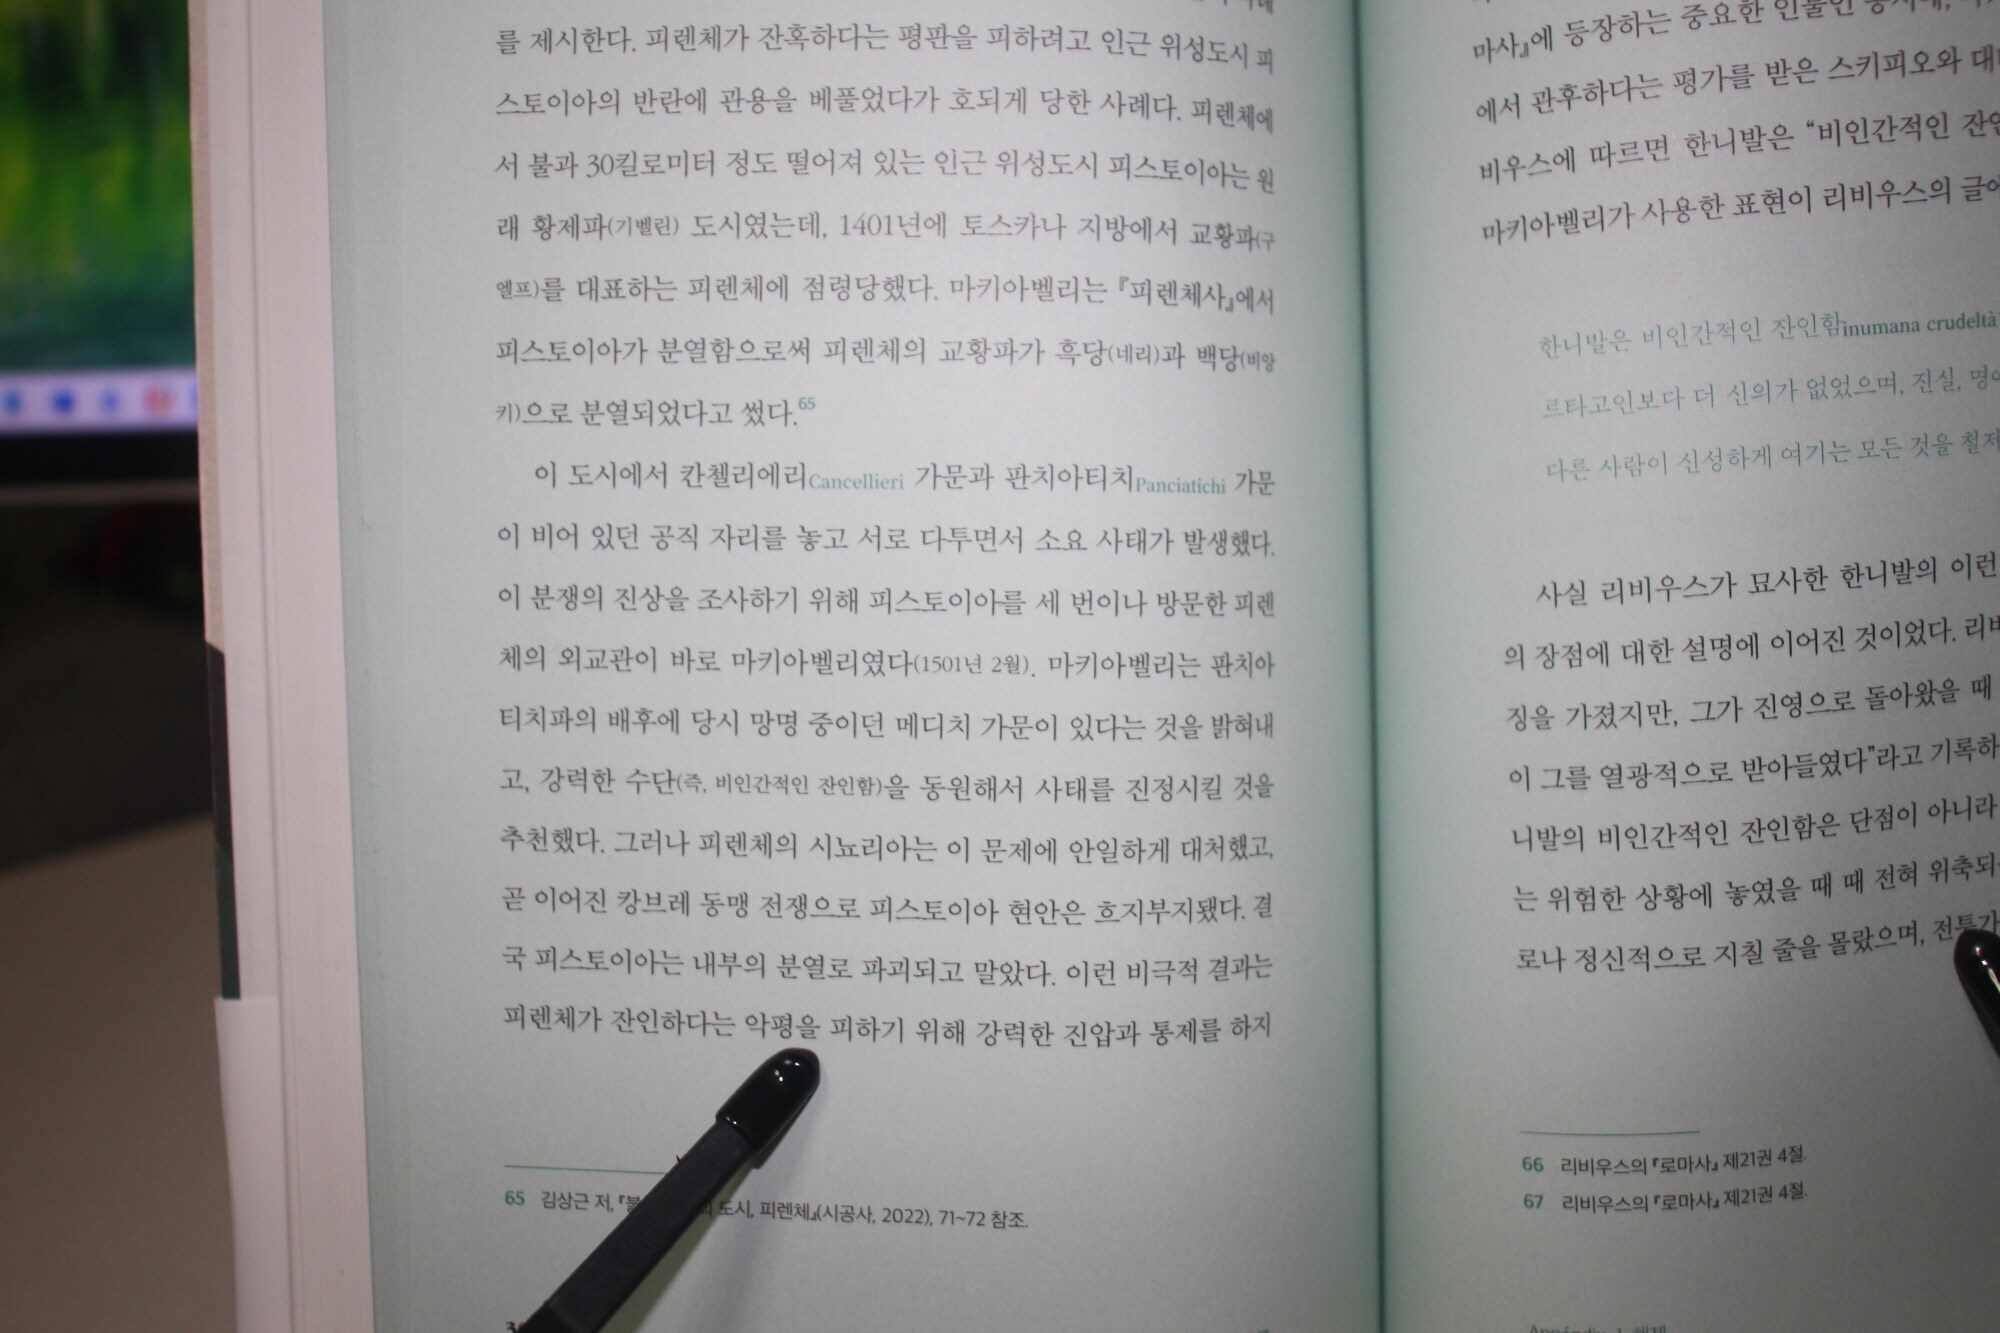 를 제시한다. 피렌체가 잔혹하다는 평판을 피하려고 인근 위성도시 피
스토이아의 반란에 관용을 베풀었다가 호되게 당한 사례다. 피렌체에
서 불과 30킬로미터 정도 떨어져 있는 인근 위성도시 피스토이아는 원
래 황제파(기벨린) 도시였는데, 1401년에 토스카나 지방에서 교황파(구
엘프)를 대표하는 피렌체에 점령당했다. 마키아벨리는 『피렌체사』에서
피스토이아가 분열함으로써 피렌체의 교황파가 흑당(네리)과 백당(비앙
키)으로 분열되었다고 썼다.65
이 도시에서 칸첼리에리Cancellieri 가문과 판치아티치Panciatichi 가문
이 비어 있던 공직 자리를 놓고 서로 다투면서 소요 사태가 발생했다.
이 분쟁의 진상을 조사하기 위해 피스토이아를 세 번이나 방문한 피렌
체의 외교관이 바로 마키아벨리였다(1501년 2월). 마키아벨리는 판치아
티치파의 배후에 당시 망명 중이던 메디치 가문이 있다는 것을 밝혀내
고, 강력한 수단(즉, 비인간적인 잔인함)을 동원해서 사태를 진정시킬 것을
추천했다. 그러나 피렌체의 시뇨리아는 이 문제에 안일하게 대처했고,
곧 이어진 캉브레 동맹 전쟁으로 피스토이아 현안은 흐지부지됐다. 결
국 피스토이아는 내부의 분열로 파괴되고 말았다. 이런 비극적 결과는
피렌체가 잔인하다는 악평을 피하기 위해 강력한 진압과 통제를 하지
65 김상근 저, 도시, 피렌체』(시공사, 2022), 71~72 참조.
마사』에 등장하는 중요한 인물인
에서 관후하다는 평가를 받은 스키피오와
비우스에 따르면 한니발은 “비인간적인
마키아벨리가 사용한 표현이 리비우스의
한니발은 비인간적인 잔인함inumana crudeltà
르타고인보다 더 신의가 없었으며, 진실,
다른 사람이 신성하게 여기는 모든 것을
사실 리비우스가 묘사한 한니발의 이런
의 장점에 대한 설명에 이어진 것이었다.
징을 가졌지만, 그가 진영으로 돌아왔을 때
이 그를 열광적으로 받아들였다”라고
니발의 비인간적인 잔인함은 단점이 아니라
는 위험한 상황에 놓였을 때 때 전혀
로나 정신적으로 지칠 줄을 몰랐으며,
66 리비우스의 『로마사』 제21권 4절.
67 리비우스의 『로마사』 제21권 4절.